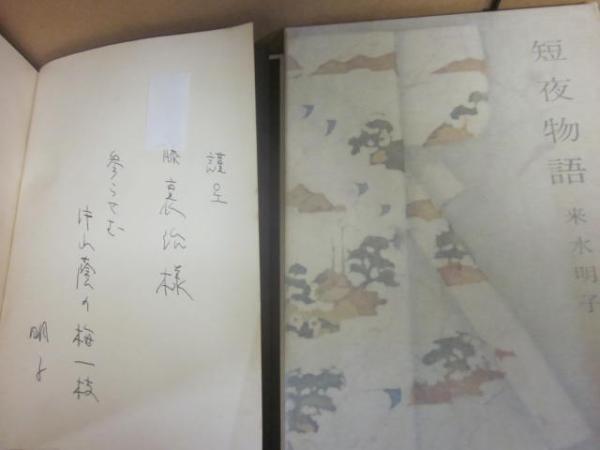 短夜物語
来水明子
謹呈
様
参らせむ
片山蔭の梅一枝
明子